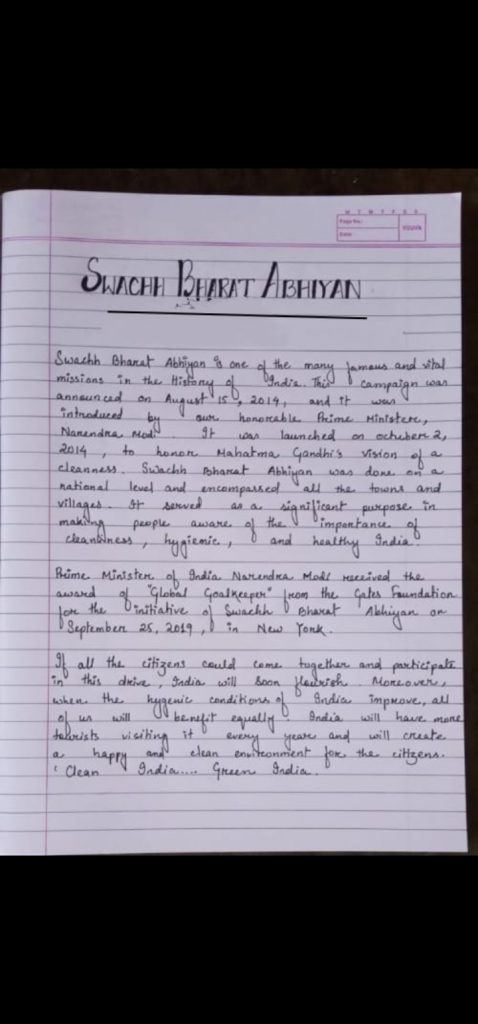 M T W T F S S
Page No.:
Date:
YOUVA
SWACHH BHARAT ABHIYAN
Swachh Bharat Abhiyan is one of the many famous and vital
missions in the History of India. This campaign was
announced on August 15, 2014, and it was
introduced by our honorable Prime Minister,
Narendra Modi. It was launched on october 2,
2014, to honor Mahatma Gandhi's vision of a
cleanness. Swachh Bharat Abhiyan was done on a
national level and encompassed all the towns and
villages. It served as a significant purpose in
making people aware of the importance of
cleanness, hygienic, and healthy India.
Prime Minister of India Narendra Modi received the
award of "Global Goalkeeper" from the Gates Foundation
for the initiative of Swachh Bharat Abhiyan on
September 25, 2019, in New York.
If all the citizens could come together and participate
in this drive, India will soon flourish. Moreover,
when the hygenic conditions of India improve, all
of us will benefit equally. India will have more
tourists visiting it every year and will create
a happy and clean environment for the citizens.
' Clean India.... Green India.